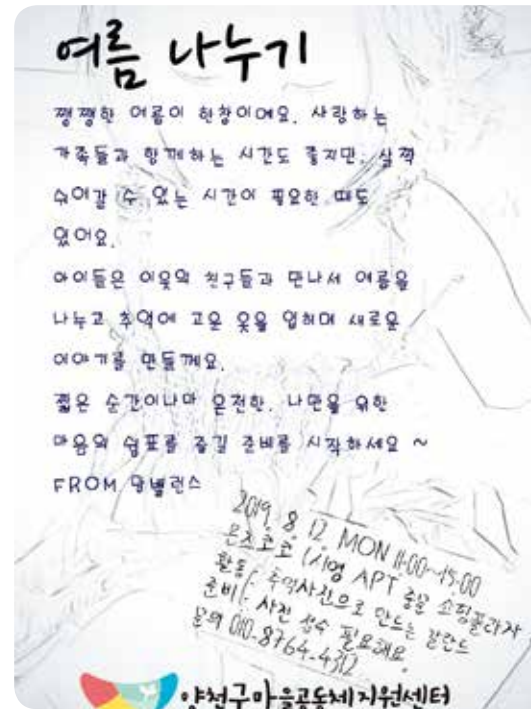 여름 나누기
쨍쨍한 여름이 한창이에요. 사랑하는
가족들과 함께하는 시간도 좋지만, 살짝
쉬어갈 수 있는 시간이 필요한 때도
있어요.
아이들은 이웃의 친구들과 만나서 여름을
나누고 추억에 고운 옷을 입히며 새로운
이야기를 만들께요.
짧은 순간이나마 온전한, 나만을 위한
마음의 쉼표를 즐길 준비를 시작하세요 ~
FROM 맘밸런스
2019. 8. 12. MON 11:00~15:00
몬츠코코 (시영 APT 중문 쇼핑플라자
활동 : 추억사진으로 만드는 갈란드
준비 : 사전 접수 필요해요.
문의 010-8764-4312
양천구마을공동체지원센터